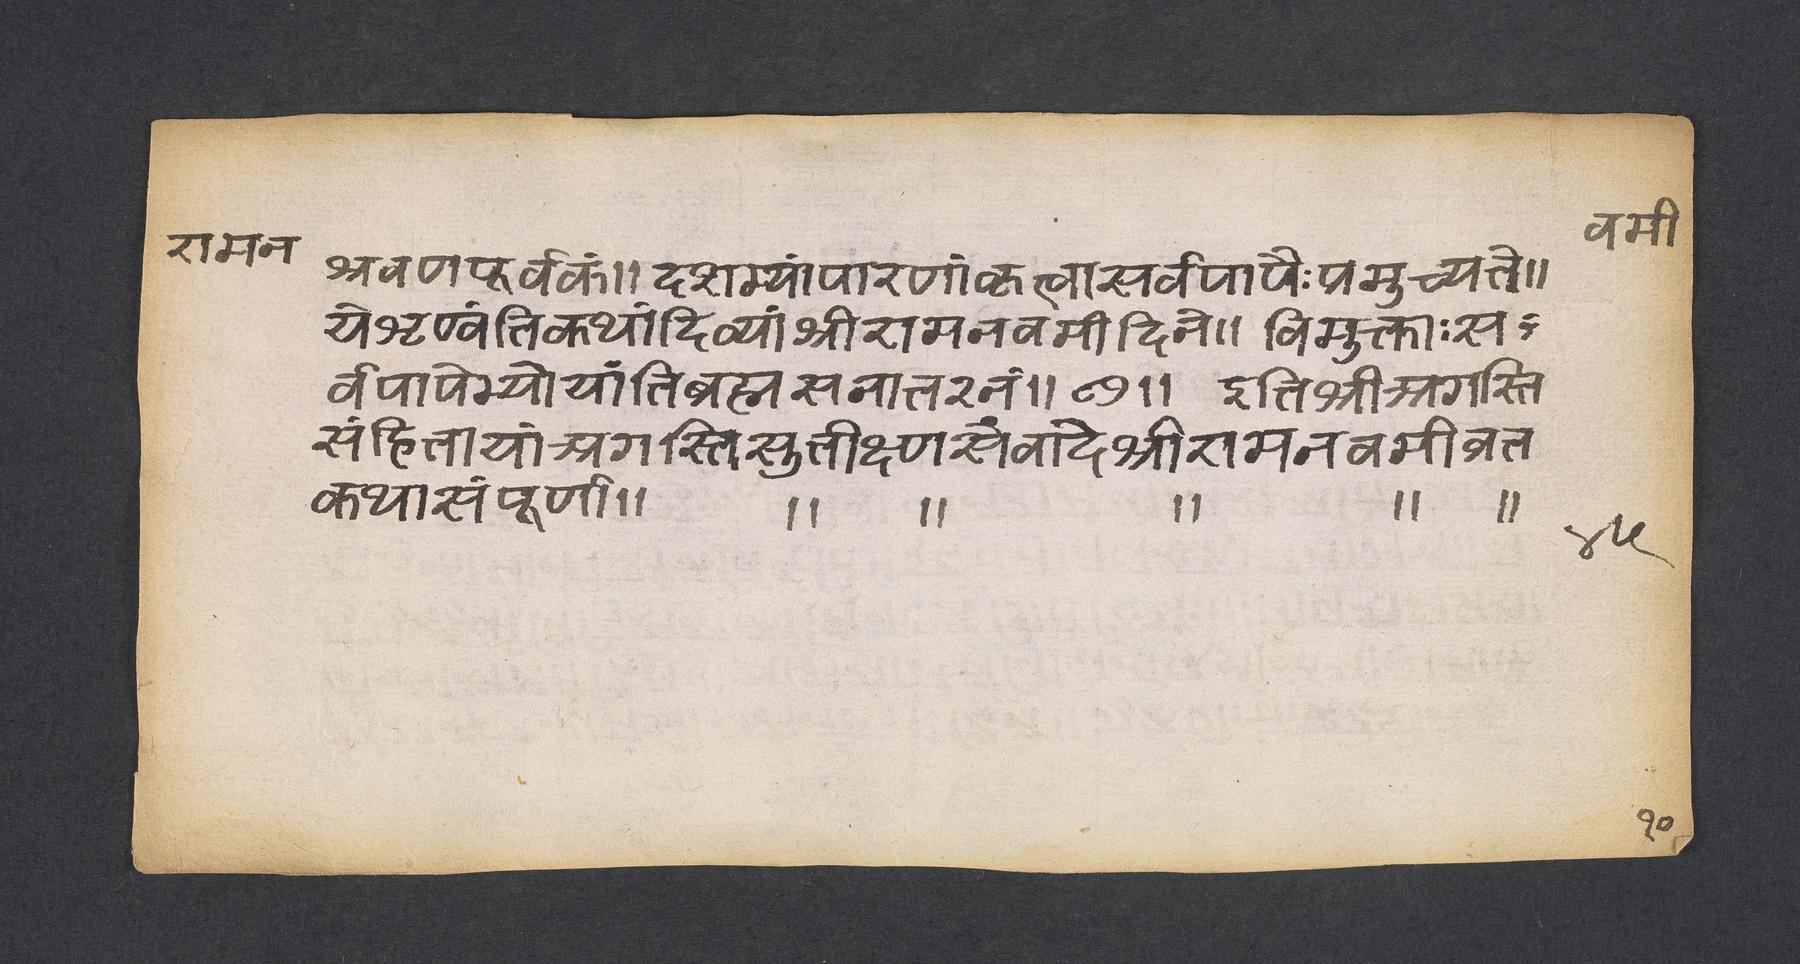 रामन
वमी
श्रवणपूर्वकं॥ दशम्यांपारणांकृत्वासर्वपापैःप्रमुच्यते॥
येशृण्वंतिकथांदिव्यांश्रीरामनवमीदिने॥ विमुक्ताःस
र्वपापेभ्योयांतिब्रह्मसनातनं॥ ७॥ इतिश्रीअगस्ति
संहितायांअगस्तिसुतीक्ष्णसंवादेश्रीरामनवमीव्रत
कथासंपूर्णा॥ ॥ ॥ ॥ ॥ ॥
४५
१०